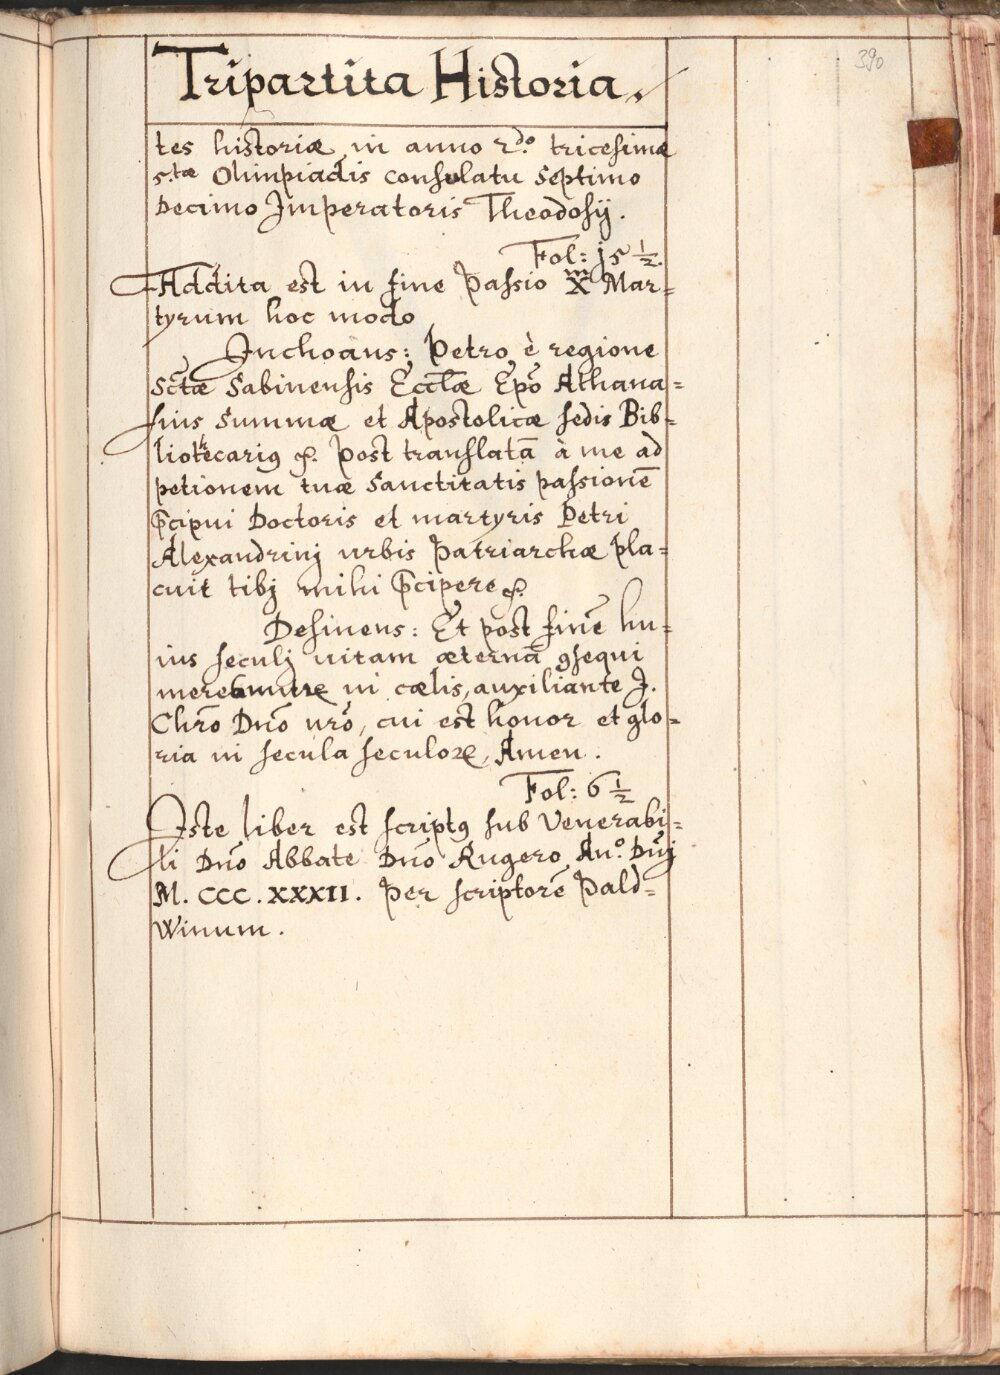 390
Tripartita Historia.
tes historiæ in anno 2.do tricesimæ
5.tæ Olimpiadis consulatu Septimo
Decimo Imperatoris Theodosij.
Fol: j5 ½.
Addita est in fine Passio X.m Mar=
tyrum hoc modo
Inchoans: Petro è regione
Sctæ Sabinensis Ecclæ Epõ Athana=
sius Summæ et Apostolicæ sedis Bib=
liotecarius Post translatã à me ad
petionem tuæ Sanctitatis passionẽ
p̃cipui Doctoris et martyris Petri
Alexandrinj urbis Patriarchæ pla=
cuit tibj mihi p̃cipere
Desinens: Et post finẽ hu=
ius seculj uitam æternã ꝯsequi
in cælis, auxiliante J.
Chr̃o Dn̄o nr̃o, cui est honor et glo=
ria in secula seculoꝝ, Amen.
Fol: 6 ½
Iste liber est scriptꝰ sub Venerabi=
li Dño Abbate Dño Rugero Anᵒ. Dñj
M. CCC. XXXII. Per scriptorẽ Pald=
winum.